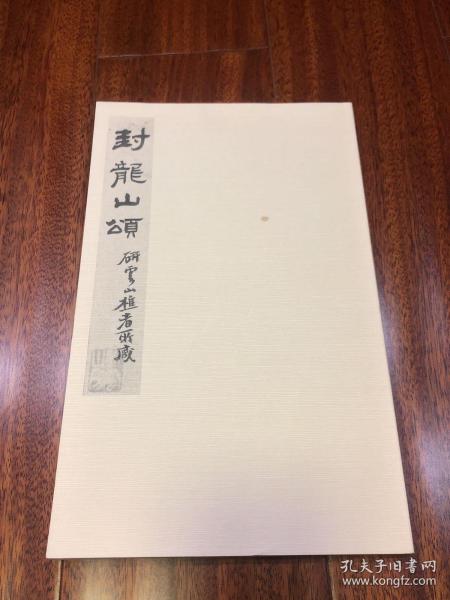 封龍山頌
研雲山樵者所藏
孔夫子旧书网
www.kongfz.com